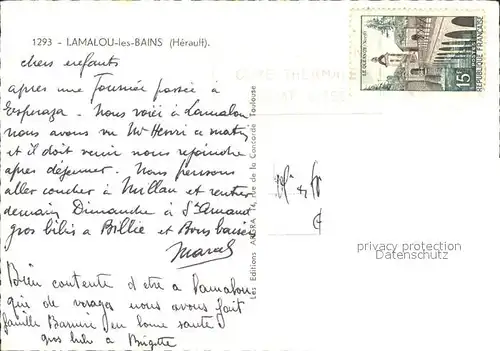 1293 - LAMALOU-les-BAINS (Hérault).
chers enfants
apres une Tournée passée à
Esperaza. Nous voici à Lamalou
nous avons vu Mr Henri ce matin
et il doit venir nous rejoindre
apres déjeuner. Nous pensons
aller coucher à Millau et rentrer
demain Dimanche à St Amand
gros bibis a Billie et Bons baisers
Marcel
Bien contente d etre a Lamalou
de voyage nous avons fait
famille en bonne santé
gros bibi a Brigitte
Les Editions 14, rue de la Concorde Toulouse
LE QUESNOY (NORD)
15F
POSTES
REPUBLIQUE FRANÇAISE
privacy protection
Datenschutz